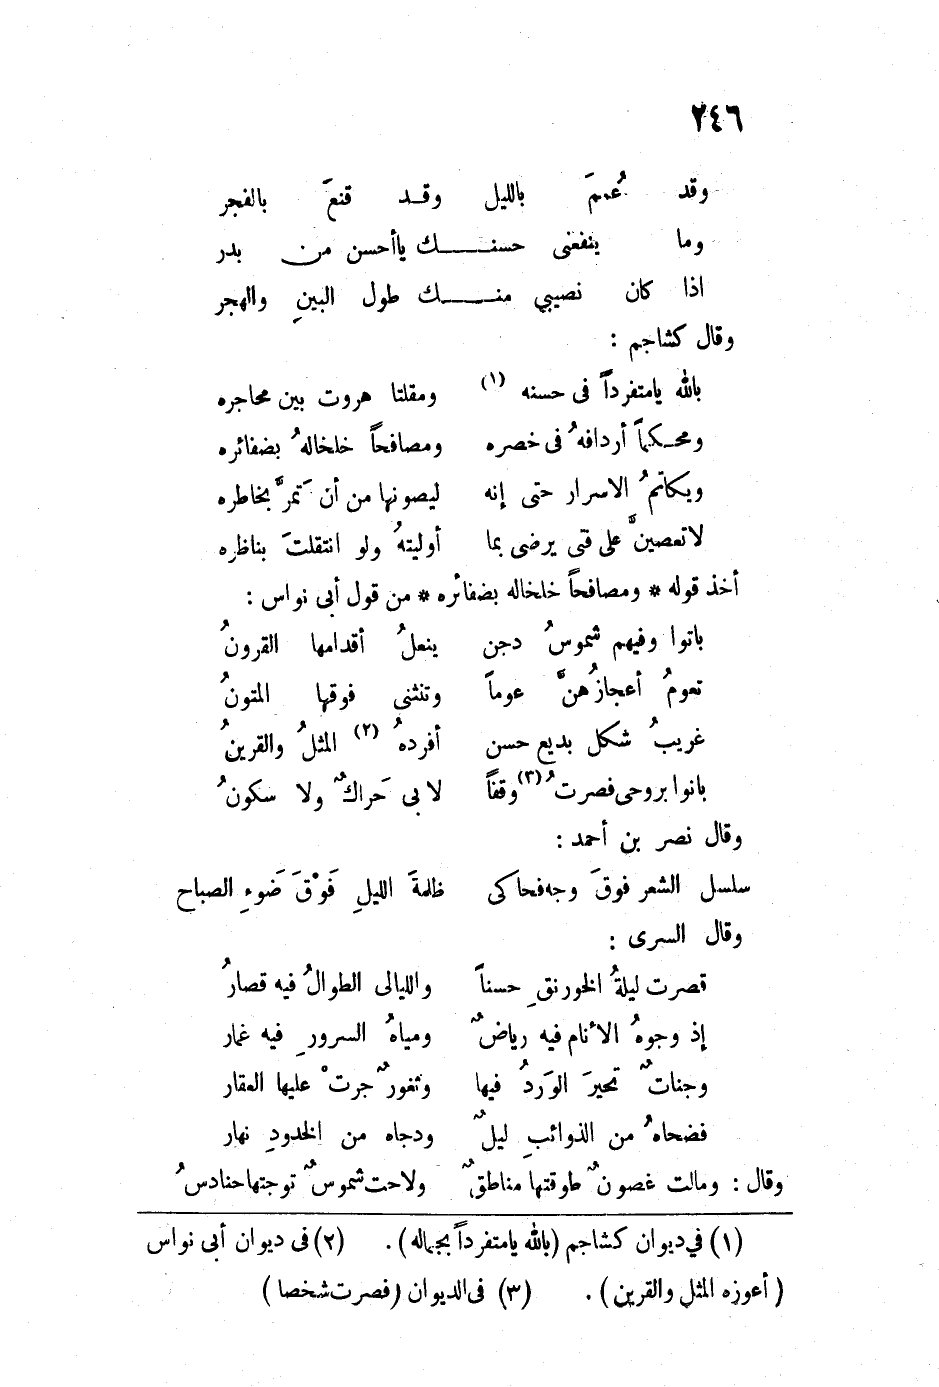 ٢٤٦
وقد عُمِّمَ بالليل وقـد قنعَ بالفجر
وما ينفعنى حسنـــك ياأحسن من بدر
اذا كان نصيبي منـــك طول البينِ والهجر
وقال كشاجم :
بالله يامتفرداً فى حسنه (١) ومقلتا هروت بين محاجره
ومحـكماً أردافهُ فى خصره ومصافحاً خلخالهُ بضفائره
ويكاتمُ الاسرار حتى إنه ليصونها من أن تَمرَّ بخاطره
لاتعصينَّ على فتى يرضى بما أوليتهُ ولو انتقلتَ بناظره
أخذ قوله * ومصافحاً خلخاله بضفائره * من قول أبى نواس :
باتوا وفيهم شموسُ دجن ينعلُ أقدامها القرونُ
تعومُ أعجازُهنَّ عوماً وتنثنى فوقها المتونُ
غريبُ شكل بديع حسن أفردهُ (٢) المثلُ والقرينُ
بانوا بروحى فصرتُ (٣) وقفاً لا بى حَراكٌ ولا سكونُ
وقال نصر بن أحمد :
سلسل الشعر فوقَ وجه فحاكى ظلمةَ الليلِ فَوْقَ ضَوءِ الصباح
وقال السرى :
قصرت ليلةُ الخورنقِ حسناً والليالى الطوالُ فيه قصارُ
إذ وجوهُ الأنام فيه رياضٌ ومياهُ السرورِ فيه غمار
وجناتٌ تحيرَ الوَردُ فيها وثغورٌ جرتْ عليها العقار
فضحاهُ من الذوائبِ ليلٌ ودجاه من الخدودِ نهار
وقال : ومالت غصونٌ طوقتها مناطقٌ ولاحت شموسٌ توجتها حنادسُ
(١) في ديوان كشاجم (بالله يامتفرداً بجماله) . (٢) فى ديوان أبى نواس
(أعوزه المثل والقرين) . (٣) فى الديوان (فصرت شخصا)